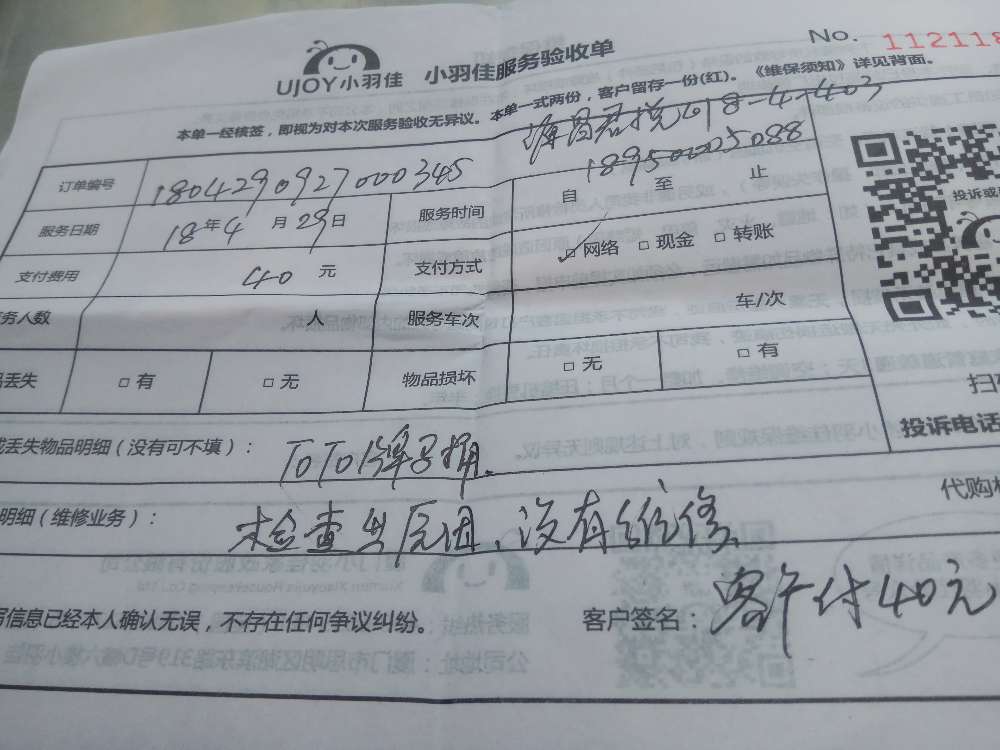 No. 112118
UJOY小羽佳 小羽佳服务验收单
本单一经核签，即视为对本次服务验收无异议。本单一式两份，客户留存一份(红)。《维保须知》详见背面。
18-4-403
18950005088
订单编号 1804290927000345 自 至 止
服务日期 18年4月29日 服务时间
投诉或
支付费用 40元 支付方式 网络 现金 转账
务人数 人 服务车次 车/次
丢失 有 无 物品损坏 无 有
扫
投诉电话
丢失物品明细（没有可不填）： TOTO牌马桶.
代购
明细（维修业务）： 检查出原因、没有维修
信息已经本人确认无误，不存在任何争议纠纷。 客户签名： 客户付40元